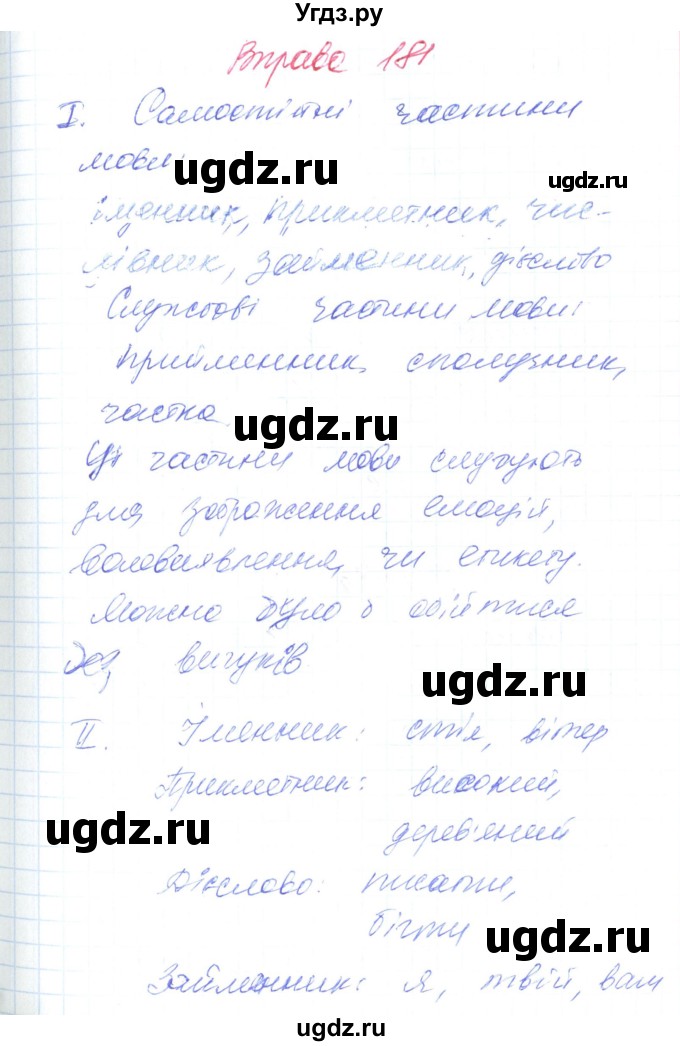 Угдз.ру
Вправа 181
I. Самостійні частини
мови:
іменник, прикметник, чис-
лівник, займенник, дієслово
Службові частини мови:
прийменник, сполучник,
частка
Ці частини мови служать
для зображення емоцій,
волевиявлення, чи етикету.
Можна було б обійтися
без вигуків
II. Іменник: стія, вітер
Прикметник: високий,
дерев'яний
Дієслово: писати,
бігти
Займенник: я, твій, вам
ugdz.ru
ugdz.ru
ugdz.ru
ugdz.ru
ugdz.ru
ugdz.ru
ugdz.ru
ugdz.ru
ugdz.ru